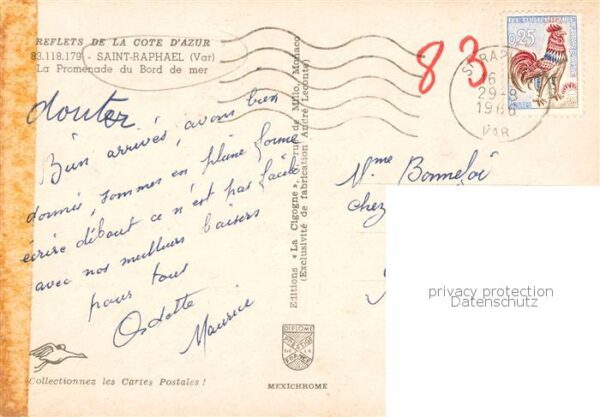 REFLETS DE LA COTE D'AZUR
83.118.179 - SAINT-RAPHAEL (Var)
La Promenade du Bord de mer
douter
Bien arrivés, avons bien
dormis, sommes en pleine forme
écrire débout ce n'est pas facile
avec nos meilleurs baisers
pour tous
Odette
Maurice
Collectionnez les Cartes Postales !
Editions « La Cigogne », rue de Millo, Monaco
(Exclusivité de fabrication André Leconte)
DIPLOME
PRESTIGE
DE LA
FRANCE
MEXICHROME
83
29-8
1966
VAR
0,25
Mme Bonnefoi
chez
privacy protection
Datenschutz